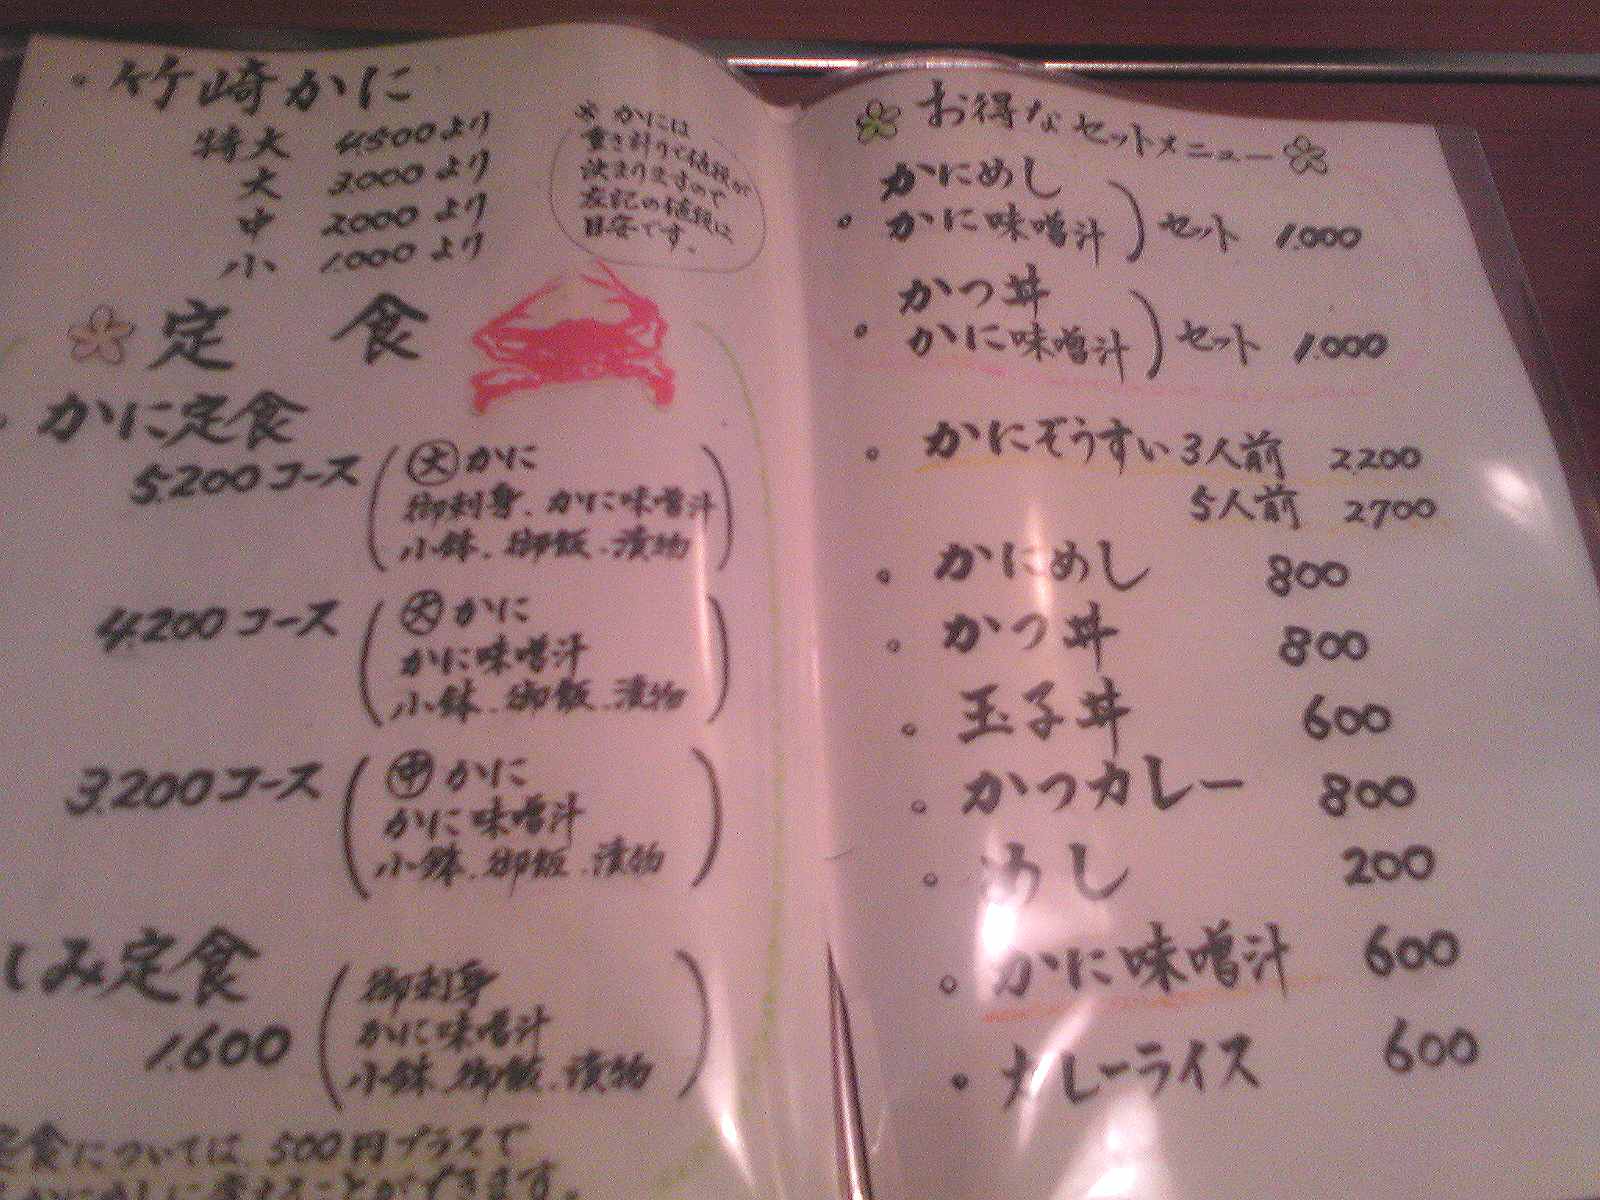 ・竹崎かに
特大 4.500より
大 3.000より
中 2.000より
小 1.000より
かには
重さ計りで値段が
決まりますので
左記の値段は
目安です。
定食
かに定食
5.200コース
大かに
御刺身、かに味噌汁
小鉢、御飯、漬物
4.200コース
大かに
かに味噌汁
小鉢、御飯、漬物
3.200コース
中かに
かに味噌汁
小鉢、御飯、漬物
しみ定食
1.600
御刺身
かに味噌汁
小鉢、御飯、漬物
定食については500円プラスで
かにめしに変えることができます。
お得なセットメニュー
かにめし
。かに味噌汁 セット 1.000
かつ丼
。かに味噌汁 セット 1.000
。かにぞうすい 3人前 2200
5人前 2700
。かにめし 800
。かつ丼 800
。玉子丼 600
。かつカレー 800
。めし 200
。かに味噌汁 600
。カレーライス 600